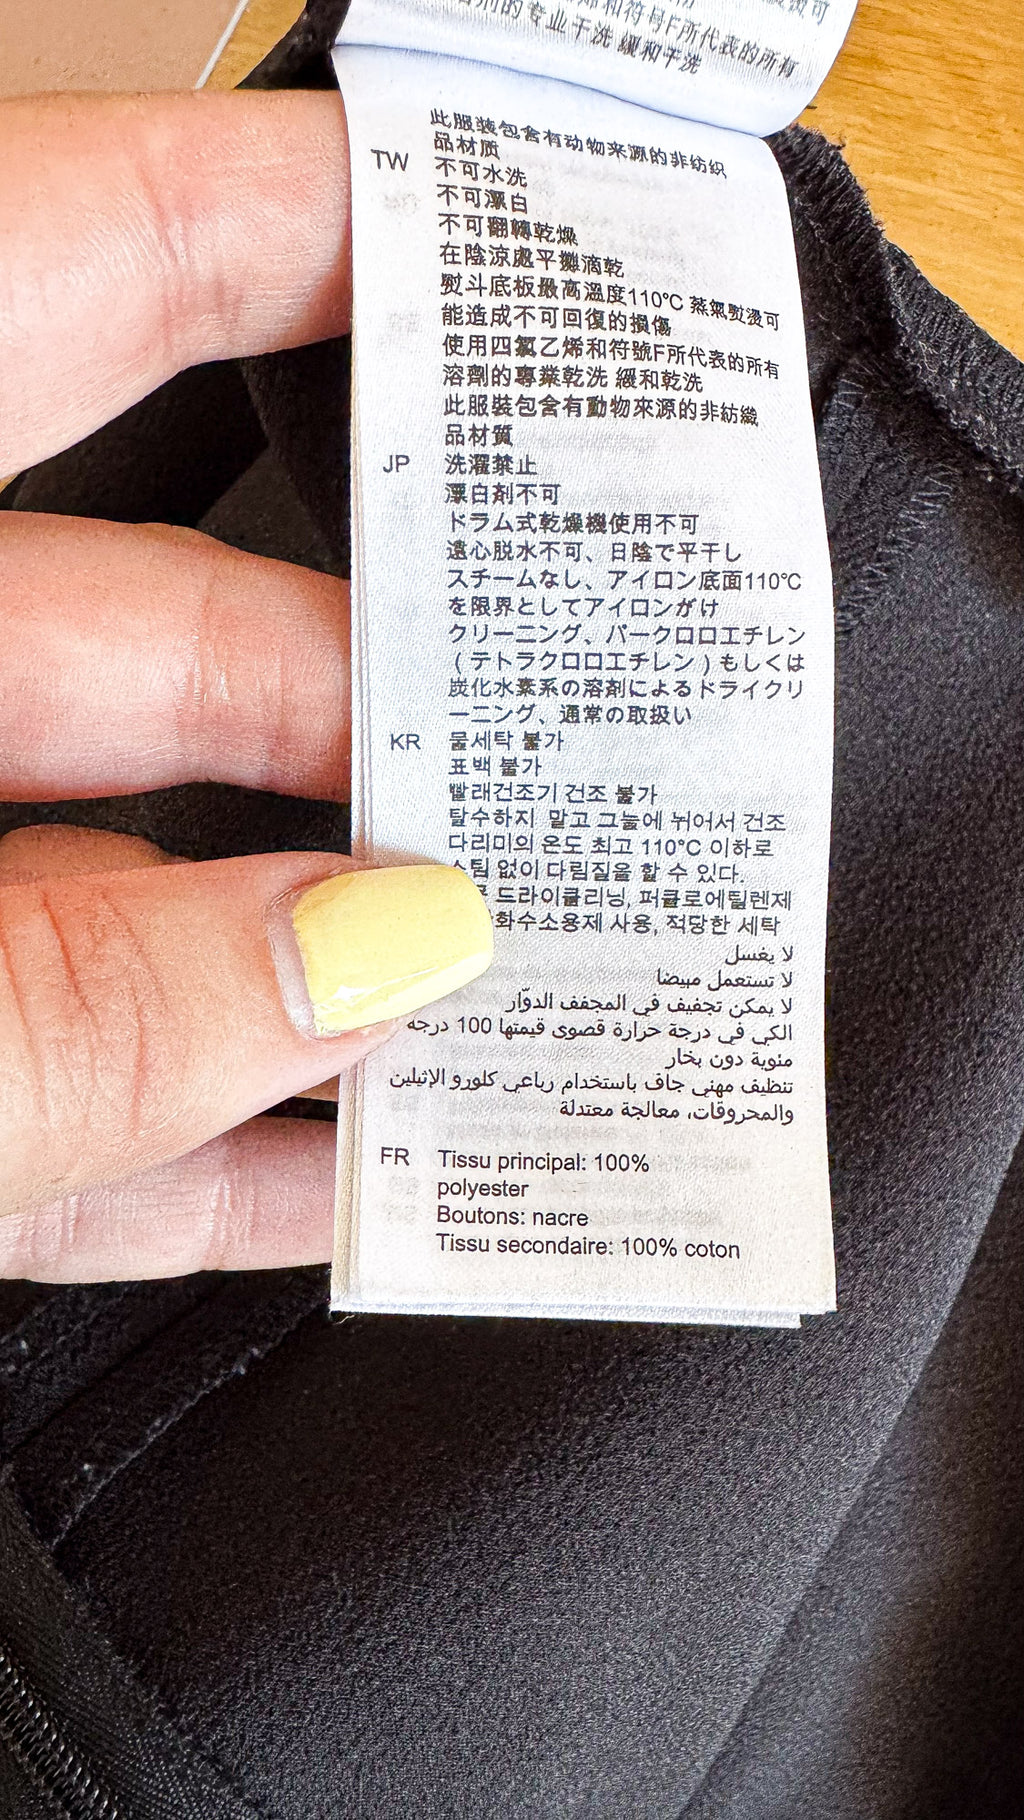 和符号F所代表的所有
的专业干洗 緩和干洗
此服装包含有动物来源的非纺织
品材质
TW 不可水洗
不可漂白
不可翻轉乾燥
在陰涼處平攤滴乾
熨斗底板最高溫度110°C 蒸氣熨燙可
能造成不可回復的損傷
使用四氯乙烯和符號F所代表的所有
溶劑的專業乾洗 緩和乾洗
此服裝包含有動物來源的非紡織
品材質
JP 洗濯禁止
漂白剤不可
ドラム式乾燥機使用不可
遠心脱水不可、日陰で平干し
スチームなし、アイロン底面110℃
を限界としてアイロンがけ
クリーニング、パークロロエチレン
(テトラクロロエチレン)もしくは
炭化水素系の溶剤によるドライクリ
ーニング、通常の取扱い
KR 물세탁 불가
표백 불가
빨래건조기 건조 불가
탈수하지 말고 그늘에 뉘어서 건조
다리미의 온도 최고 110°C 이하로
스팀 없이 다림질을 할 수 있다.
드라이클리닝, 퍼클로에틸렌제
화수소용제 사용, 적당한 세탁
لا يغسل
لا تستعمل مبيضا
لا يمكن تجفيف في المجفف الدوّار
الكي في درجة حرارة قصوى قيمتها 100 درجة
مئوية دون بخار
تنظيف مهني جاف باستخدام رباعي كلورو الإثيلين
والمحروقات، معالجة معتدلة
FR Tissu principal: 100%
polyester
Boutons: nacre
Tissu secondaire: 100% coton